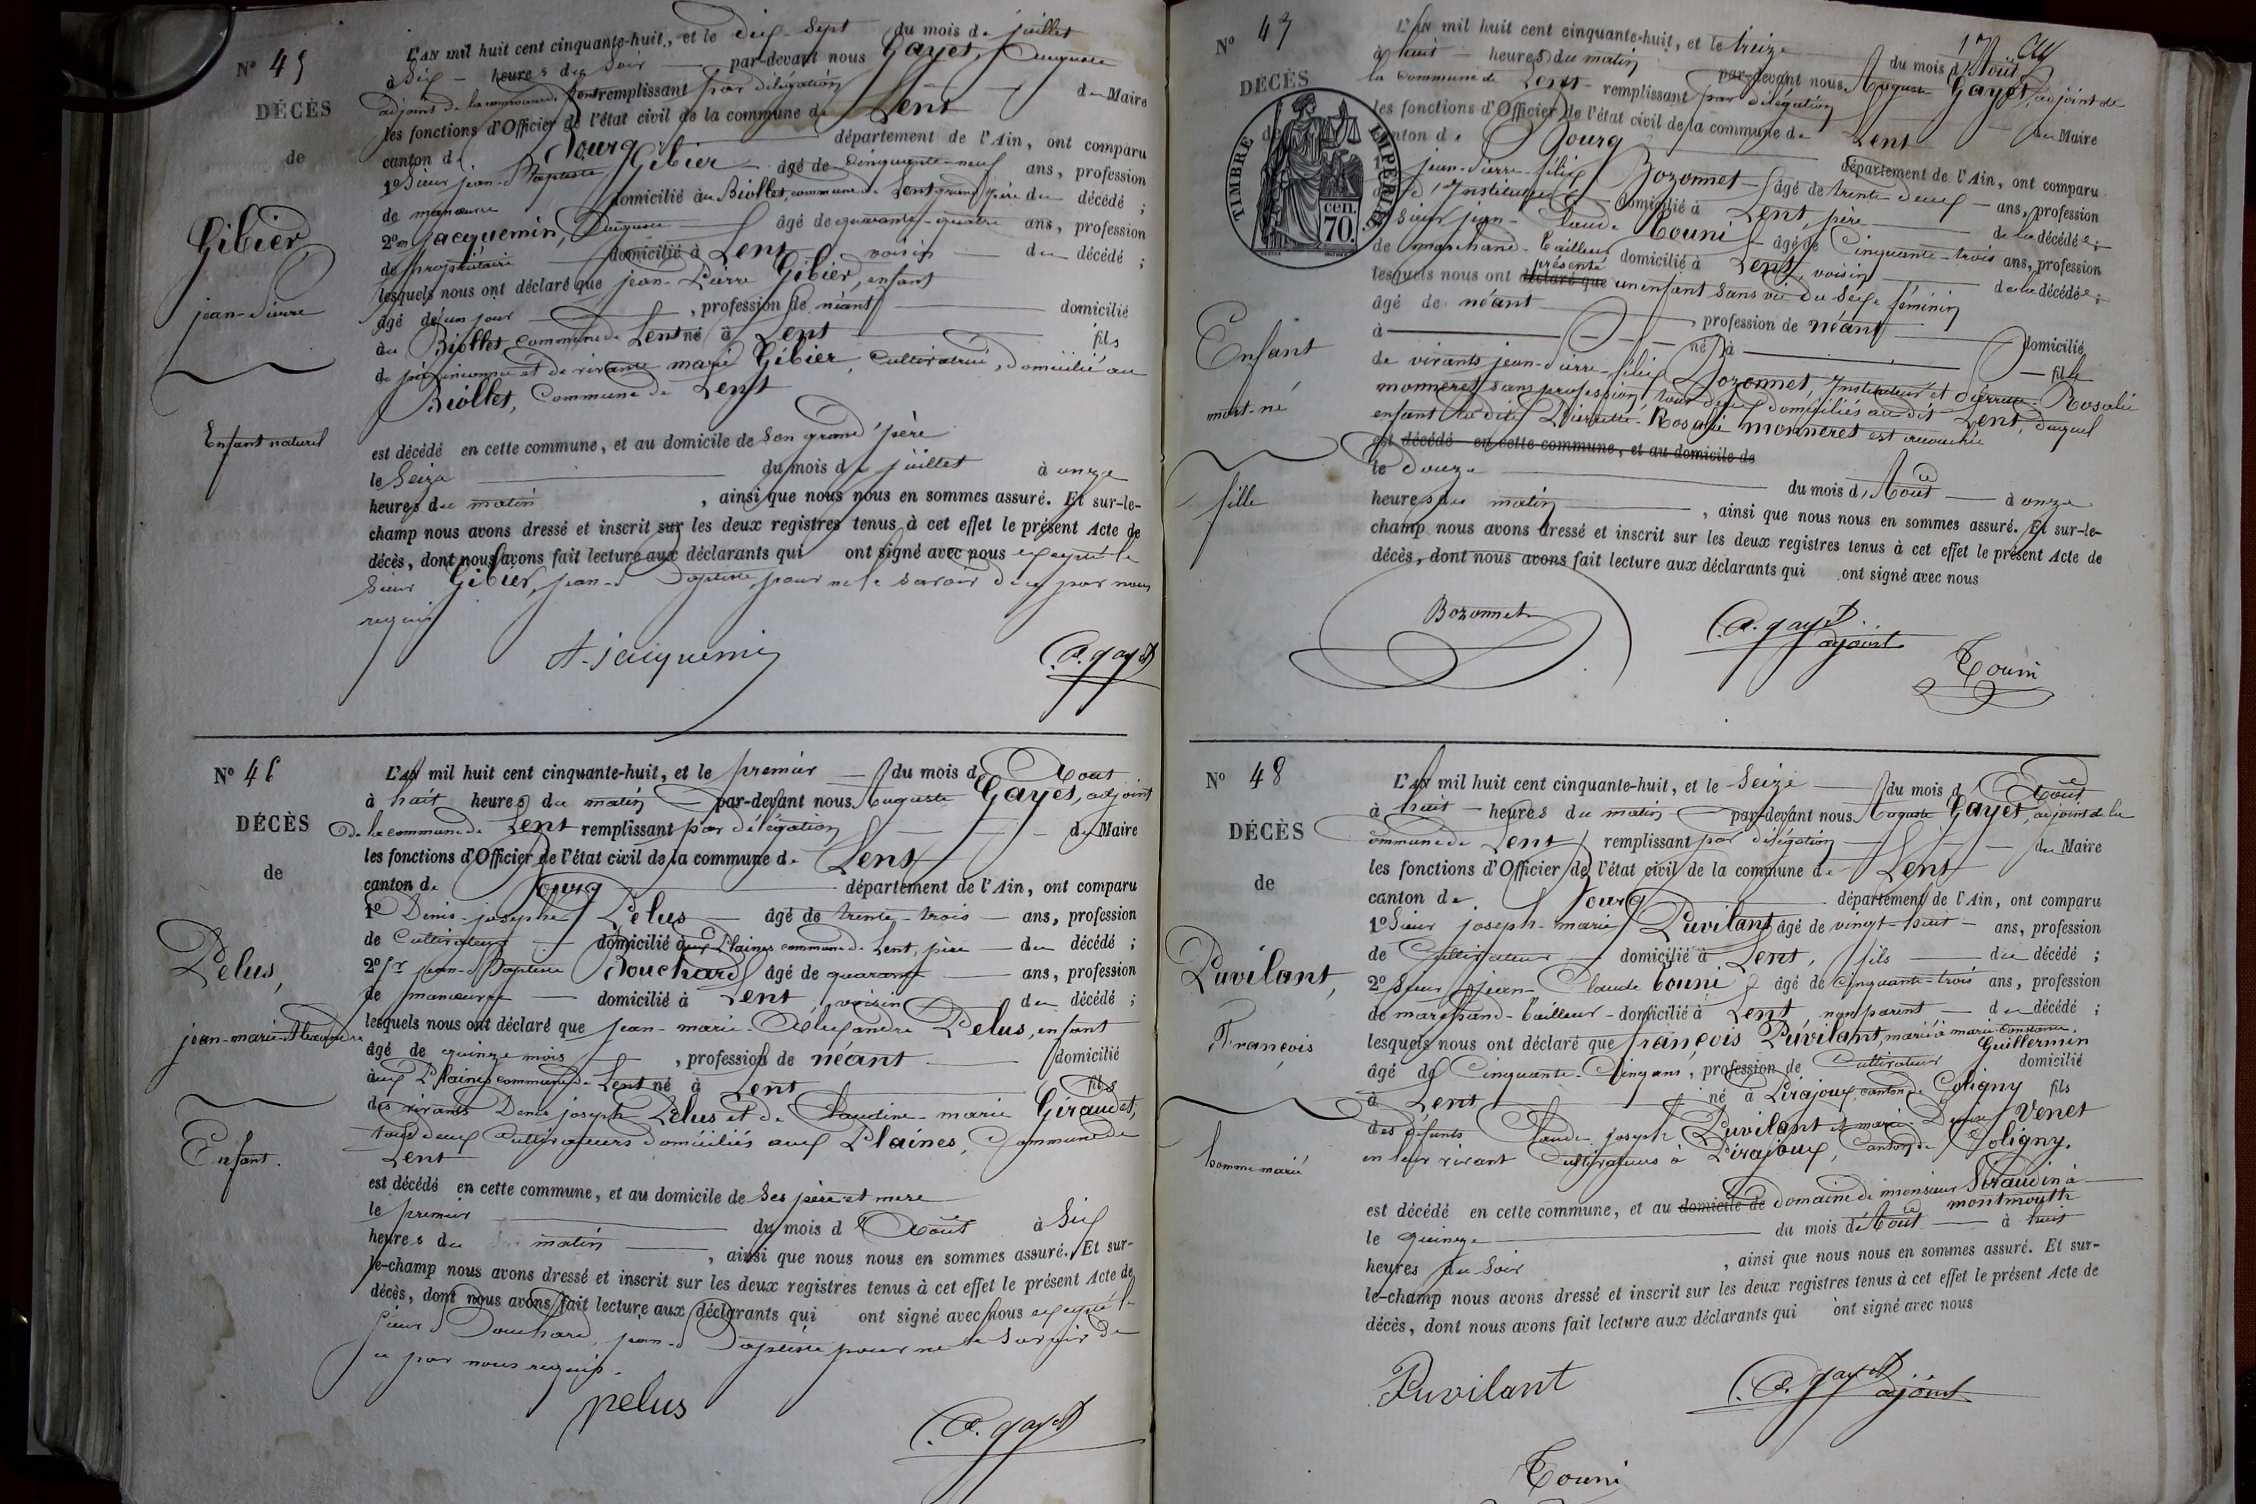 N° 45
DÉCÈS
de
Gibier
jean-Pierre
Enfant naturel
L'AN mil huit cent cinquante-huit, et le dix-Sept du mois de juillet
à Six heures du Soir par-devant nous Gayet, Auguste
adjoint de la commune de Lent remplissant par délégation du Maire
les fonctions d'Officier de l'état civil de la commune de Lent
canton de Bourg département de l'Ain, ont comparu
1° Sieur jean-Baptiste Gibier âgé de cinquante-neuf ans, profession
de manœuvre domicilié au Biollet, commune de Lent grand père du décédé ;
2° Jacquemin, Auguste âgé de quarante-quatre ans, profession
de propriétaire domicilié à Lent voisin du décédé ;
lesquels nous ont déclaré que jean-Pierre Gibier, enfant
âgé de un jour, profession de néant domicilié
au Biollet commune de Lent né à Lent fils
de père inconnu et de vivante marie Gibier, cultivatrice, domiciliée au
Biollet, Commune de Lent
est décédé en cette commune, et au domicile de Son grand'père
le Seize du mois de juillet à onze
heures du matin, ainsi que nous nous en sommes assuré. Et sur-le-
champ nous avons dressé et inscrit sur les deux registres tenus à cet effet le présent Acte de
décès, dont nous avons fait lecture aux déclarants qui ont signé avec nous excepté le
Sieur Gibier, jean-Baptiste pour ne le savoir de ce par nous
requis
A. Jacquemin
A. gayet
N° 46
DÉCÈS
de
Pelus,
jean-marie-Alexandre
Enfant.
L'AN mil huit cent cinquante-huit, et le premier du mois d'Aout
à huit heures du matin par-devant nous Auguste Gayet, adjoint
de la commune de Lent remplissant par délégation du Maire
les fonctions d'Officier de l'état civil de la commune de Lent
canton de Bourg département de l'Ain, ont comparu
1° Denis-joseph Pelus âgé de trente-trois ans, profession
de Cultivateur domicilié aux Plaines commune de Lent, père du décédé ;
2° Sr jean-Baptiste Bouchard âgé de quarante ans, profession
de manœuvre domicilié à Lent, voisin du décédé ;
lesquels nous ont déclaré que jean-marie-Alexandre Pelus, enfant
âgé de quinze mois, profession de néant domicilié
aux Plaines commune de Lent né à Lent fils
des vivants Denis joseph Pelus et de Claudine-marie Géraudet,
tous deux Cultivateurs domiciliés aux Plaines, Commune de
Lent
est décédé en cette commune, et au domicile de Ses père et mere
le premier du mois d'Août à Six
heures du matin, ainsi que nous nous en sommes assuré. Et sur-
le-champ nous avons dressé et inscrit sur les deux registres tenus à cet effet le présent Acte de
décès, dont nous avons fait lecture aux déclarants qui ont signé avec nous excepté le
Sieur Bouchard, jean-Baptiste pour ne le savoir de
ce par nous requis.
pelus
A. gayet
N° 47
DÉCÈS
de
TIMBRE IMPÉRIAL
70 cen.
Enfant
mort-né
fille
L'AN mil huit cent cinquante-huit, et le treize du mois d'Août
à huit heures du matin par-devant nous Auguste Gayet, adjoint de
la commune de Lent remplissant par délégation du Maire
les fonctions d'Officier de l'état civil de la commune de Lent
canton de Bourg département de l'Ain, ont comparu
jean-Pierre-félix Bozonnet âgé de trente-deux ans, profession
d'Instituteur domicilié à Lent, père de la décédée ;
Sieur jean-Claude Couni âgé de Cinquante-trois ans, profession
de marchand-Tailleur domicilié à Lent, voisin de la décédée ;
lesquels nous ont déclaré que présenté un enfant Sans vie du Sexe féminin
âgé de néant, profession de néant domicilié
à né à fille
de vivants jean-Pierre-félix Bozonnet, Instituteur et Pierrette-Rosalie
monneret sans profession, tous deux domiciliés audit Lent, duquel
enfant la dite Pierrette-Rosalie monneret est accouchée
est décédé en cette commune, et au domicile de
le Douze du mois d'Août à onze
heures du matin, ainsi que nous nous en sommes assuré. Et sur-le-
champ nous avons dressé et inscrit sur les deux registres tenus à cet effet le présent Acte de
décès, dont nous avons fait lecture aux déclarants qui ont signé avec nous
Bozonnet
A. gayet
adjoint
Couni
N° 48
DÉCÈS
de
Puvilant,
François
homme marié
L'AN mil huit cent cinquante-huit, et le Seize du mois d'Août
à huit heures du matin par-devant nous Auguste Gayet, adjoint de la
commune de Lent remplissant par délégation du Maire
les fonctions d'Officier de l'état civil de la commune de Lent
canton de Bourg département de l'Ain, ont comparu
1° Sieur joseph-marie Puvilant âgé de vingt-huit ans, profession
de Cultivateur domicilié à Lent, fils du décédé ;
2° Sieur jean-Claude Couni âgé de Cinquante-trois ans, profession
de marchand-Tailleur domicilié à Lent, non parent, du décédé ;
lesquels nous ont déclaré que françois Puvilant, marié à marie-Constance Guillermin
âgé de Cinquante-Cinq ans, profession de Cultivateur domicilié
à Lent né à Pirajoux, canton de Coligny fils
des défunts Claude-joseph Puvilant et marie-Denise Venet
en leur vivant Cultivateurs à Pirajoux, Canton de Coligny.
est décédé en cette commune, et au domicile de domaine de monsieur Béraudin à
montmouth
le quinze du mois d'Août à huit
heures du Soir, ainsi que nous nous en sommes assuré. Et sur-
le-champ nous avons dressé et inscrit sur les deux registres tenus à cet effet le présent Acte de
décès, dont nous avons fait lecture aux déclarants qui ont signé avec nous
Puvilant
A. gayet
adjoint
Couni